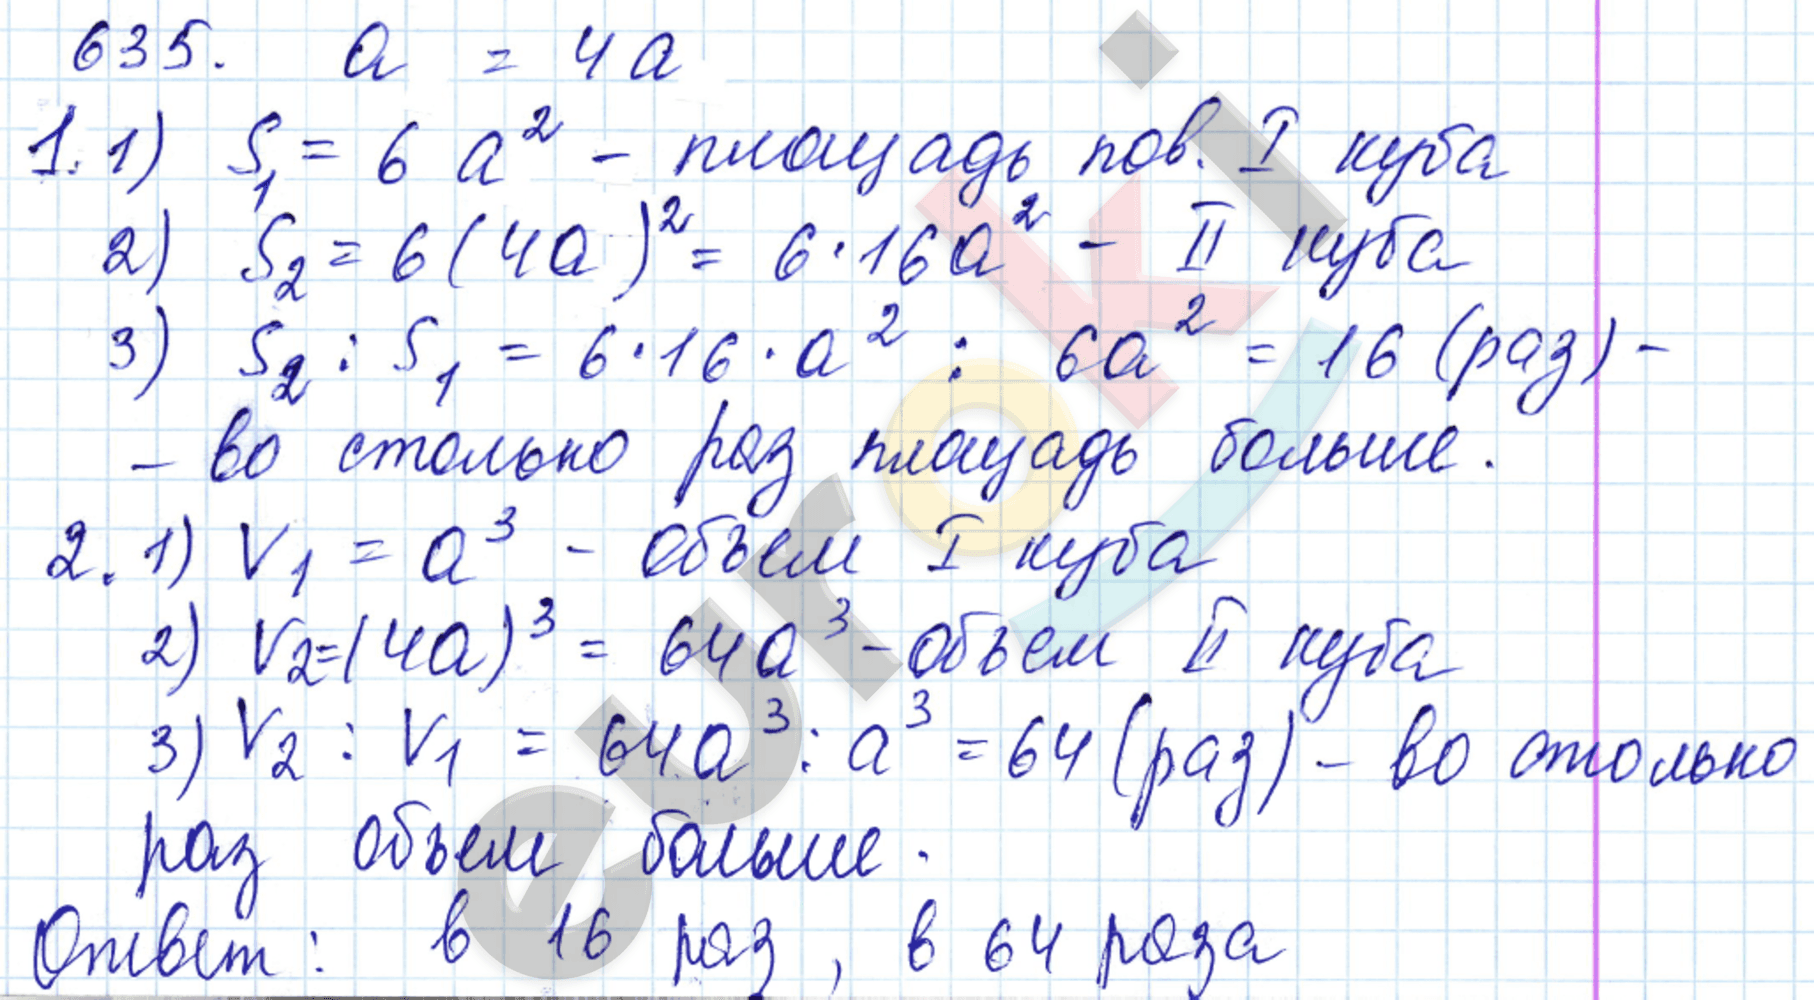 635. a = 4a
1. 1) S₁ = 6 a² - площадь пов. I куба
2) S₂ = 6(4a)² = 6·16a² - II куба
3) S₂ : S₁ = 6·16·a² : 6a² = 16 (раз) -
- во столько раз площадь больше.
2. 1) V₁ = a³ - объем I куба
2) V₂=(4a)³ = 64a³ - объем II куба
3) V₂ : V₁ = 64a³ : a³ = 64 (раз) - во столько
раз объем больше.
Ответ: в 16 раз, в 64 раза
euroki